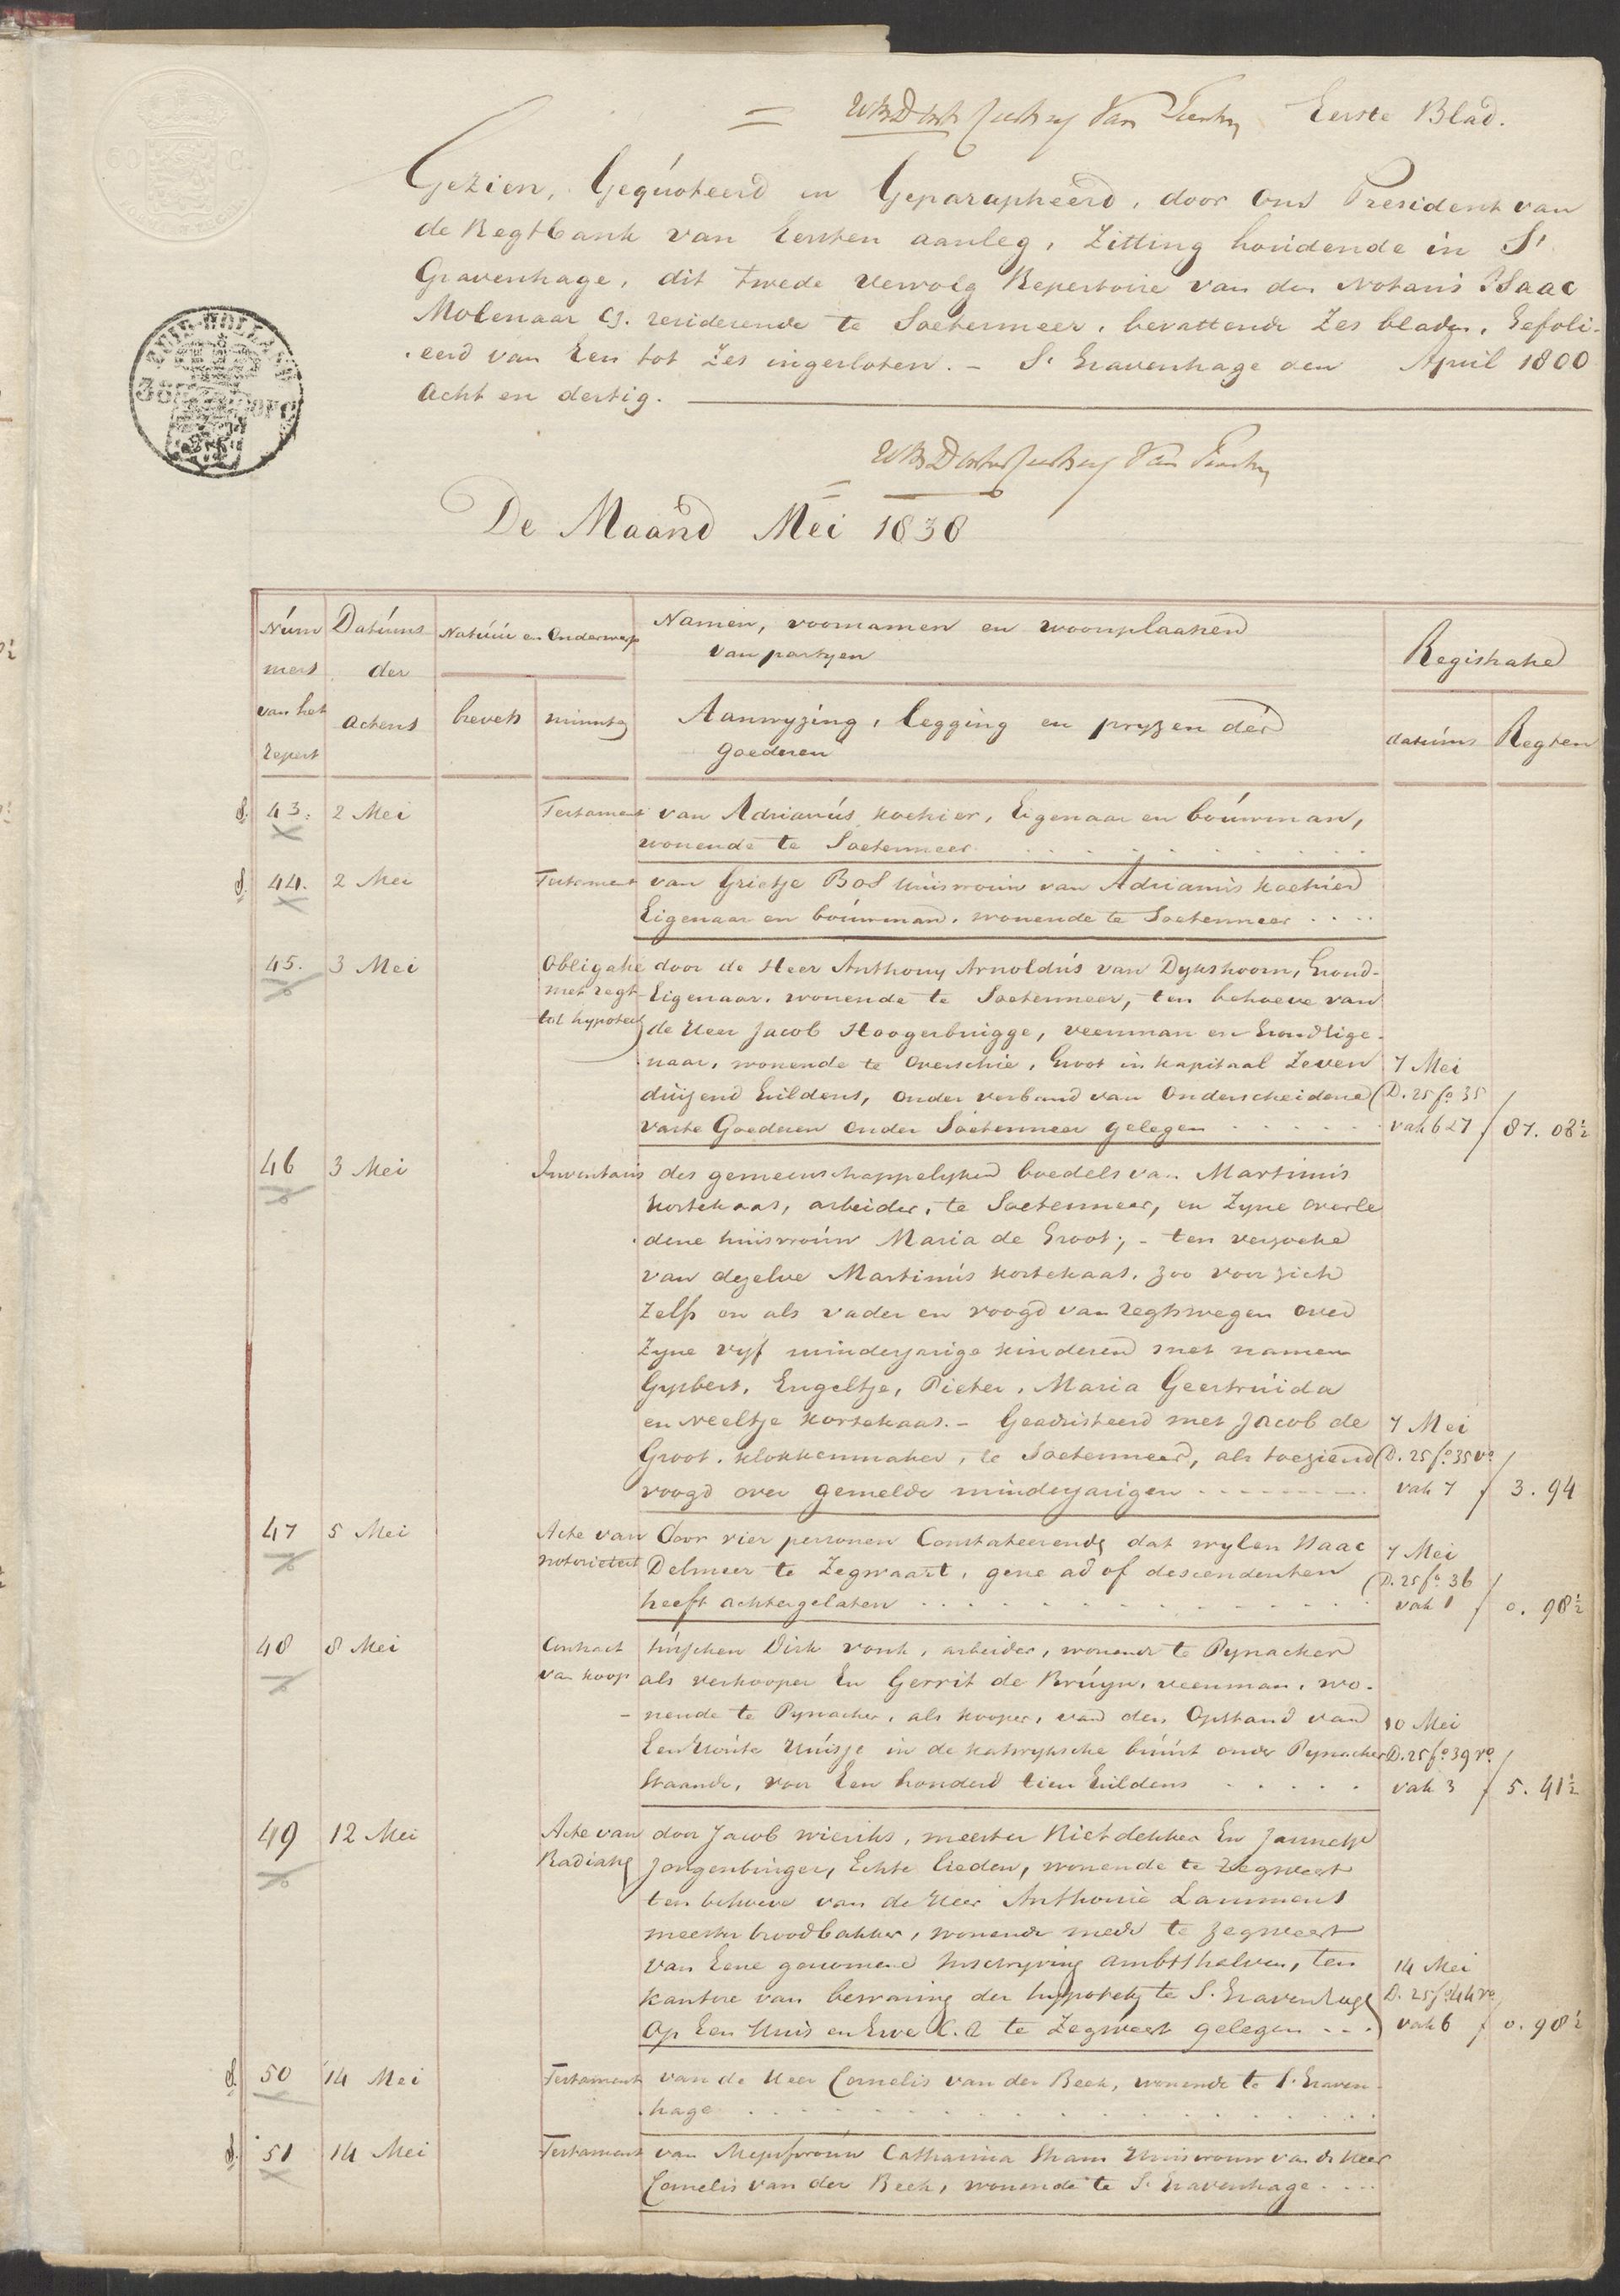 Eerste Blad.
Gezien, Gequoteerd en Geparapheerd, door ons President van
de Regtbank van Eersten aanleg, Zitting houdende in S'
Gravenhage, dit twede vervolg Repertoire van den Notaris Isaac
Molenaar CJ. residerende te Soetermeer, bevattende Zes bladen, Gefoli-
eerd van Een tot Zes ingesloten. - S' Gravenhage den April 1800
Acht en dertig.
De Maand Mei 1838
Num
mers
van het
Repert
Datums
der
Actens
Natuur en Onderwerp
brevets
minuten
Namen, voornamen en woonplaatsen
van partyen
Aanwyzing, legging en pryzen der
Goederen
Registratie
datums
Regten
43. 2 Mei Testament van Adrianus Koekier, Eigenaar en bouwman,
wonende te Soetermeer
44. 2 Mei Testament van Grietje Bos huisvrouw van Adrianus Koekier
Eigenaar en bouwman, wonende te Soetermeer
45. 3 Mei Obligatie door de Heer Anthony Arnoldus van Dykshoorn, Grond-
met regt Eigenaar, wonende te Soetermeer, ten behoeve van
tot hypoteek de Heer Jacob Hoogerbrugge, veenman en Grondeige-
naar, wonende te Overschie, Groot in kapitaal Zeven 7 Mei
duizend Guldens, onder verband van Onderscheidene D. 25 fo 35
vaste Goederen onder Soetermeer gelegen vak 6 27 f 87. 08½
46 3 Mei Inventaris des gemeenschappelyken boedels van Martinus
Kortekaas, arbeider, te Soetermeer, en Zyne overle
dene huisvrouw Maria de Groot; - ten verzoeke
van dezelve Martinus Kortekaas, zoo voor zich
Zelfs en als vader en voogd van regtswegen over
Zyne vyf minderjarige kinderen met namen
Gysbert, Engeltje, Pieter, Maria Geertruida
en Neeltje Kortekaas. - Geadsisteerd met Jacob de 7 Mei
Groot, klokkenmaker, te Soetermeer, als toeziend D. 25 fo 35 vo
voogd over gemelde minderjarigen vak 7 f 3. 94
47 5 Mei Acte van door vier personen Constateerende dat wylen Isaac 7 Mei
notorieteit Delmeer te Zegwaart, gene ad of descendenten D. 25 fo 36
heeft achtergelaten vak 1 f 0. 98½
48 8 Mei Contract tusschen Dirk vonk, arbeider, wonende te Pynacker
van koop als verkooper En Gerrit de Bruyn, veenman, wo-
nende te Pynacker, als kooper, van den Opstand van 10 Mei
Een Houte Huisje in de Katwyksche buurt onder Pynacker D. 25 fo 39 ro
Staande, voor Een honderd tien Guldens vak 3 f 5. 41½
49 12 Mei Acte van door Jacob wieriks, meester Rietdekker En Jannetje
Radiatie Jongenburger, Echte lieden, wonende te Zegweert
ten behoeve van de Heer Anthonie Lammens
meester broodbakker, wonende mede te Zegweert
van Eene genomene Inschryving ambtshalven, ten 14 Mei
kantore van bewaring der hypoteken te S. Gravenhage D. 25 fo 44 vo
Op Een Huis en Erve C. A te Zegweert gelegen vak 6 f 0. 98½
50 14 Mei Testament van de Heer Cornelis van der Beek, wonende te S. Graven-
hage
51 14 Mei Testament van Mejufvrouw Catharina Stam Huisvrouw van de Heer
Cornelis van der Beek, wonende te S. Gravenhage